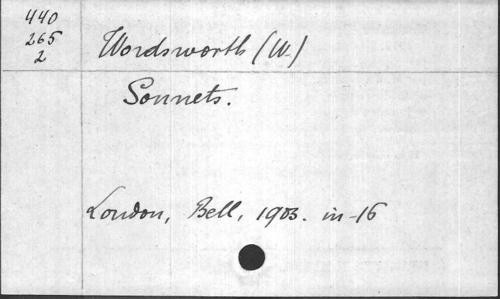 440
265
2
Wordsworth (W.)
Sonnets.
London, Bell, 1903. in-16